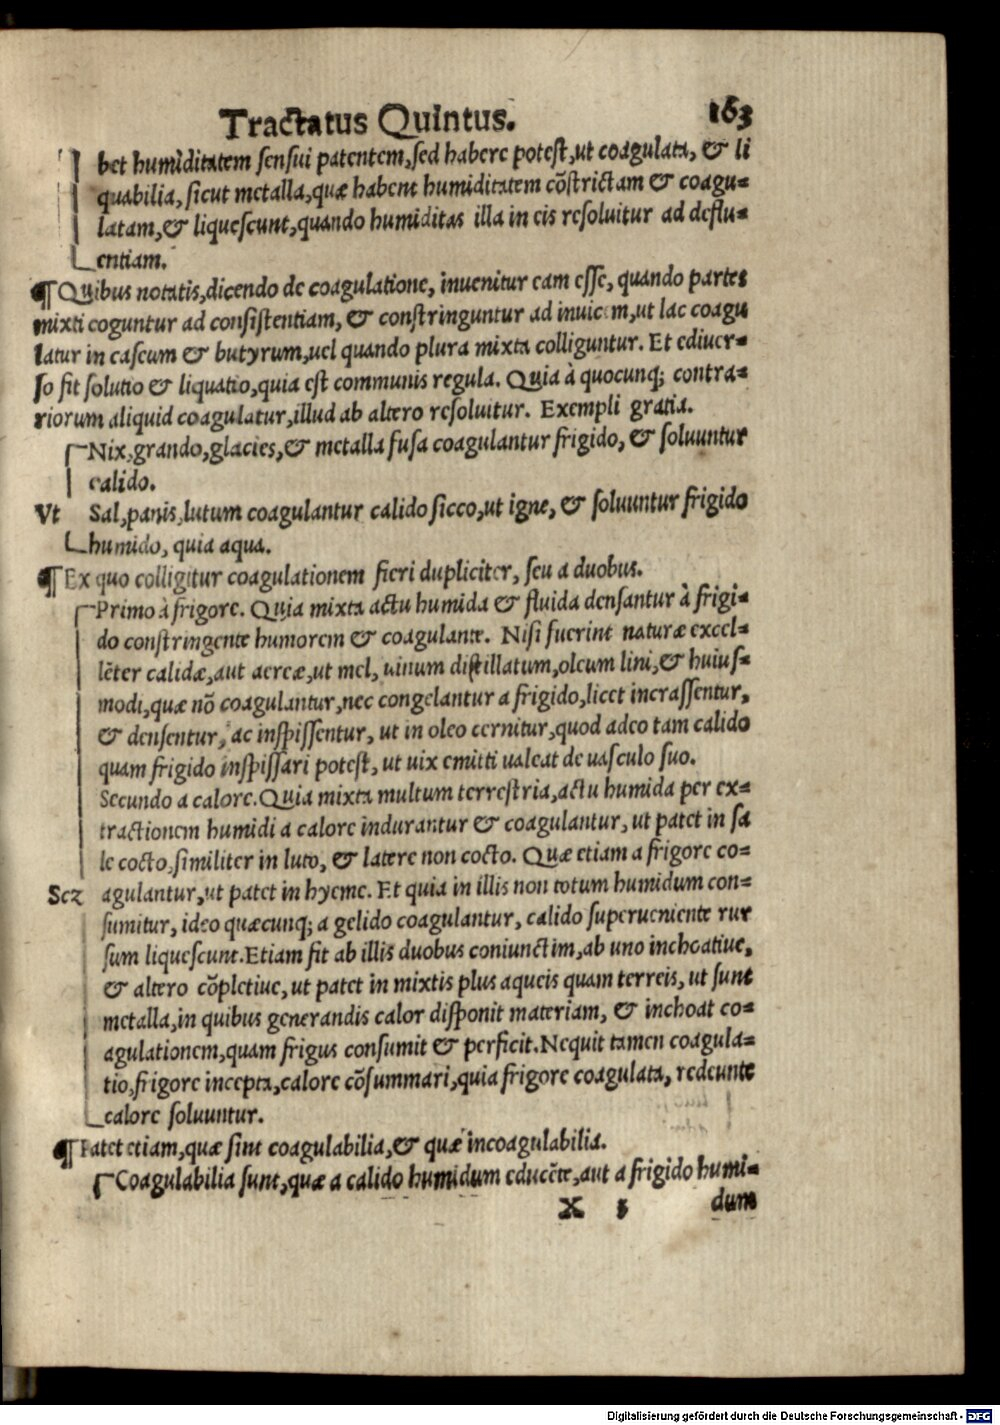 Tractatus Quintus. 163
bet humiditatem sensui patentem, sed habere potest, ut coagulata, & li
quabilia, sicut metalla, quæ habent humiditatem cõstrictam & coagu=
latam, & liquescunt, quando humiditas illa in eis resoluitur ad deflu=
entiam.
¶ Quibus notatis, dicendo de coagulatione, inuenitur eam esse, quando partes
mixti coguntur ad consistentiam, & constringuntur ad inuicem, ut lac coagu
latur in caseum & butyrum, uel quando plura mixta colliguntur. Et ediuer=
so fit solutio & liquatio, quia est communis regula. Quia à quocunq; contra=
riorum aliquid coagulatur, illud ab altero resoluitur. Exempli gratia.
Nix, grando, glacies, & metalla fusa coagulantur frigido, & soluuntur
calido.
Vt Sal, panis, lutum coagulantur calido sicco, ut igne, & soluuntur frigido
humido, quia aqua.
¶ Ex quo colligitur coagulationem fieri dupliciter, seu a duobus.
Primo à frigore. Quia mixta actu humida & fluida densantur à frigi=
do constringente humorem & coagulante. Nisi fuerint naturæ excel=
lẽter calidæ, aut aereæ, ut mel, uinum distillatum, oleum lini, & huius=
modi, quæ nõ coagulantur, nec congelantur a frigido, licet incrassentur,
& densentur, ac inspissentur, ut in oleo cernitur, quod adeo tam calido
quam frigido inspissari potest, ut uix emitti ualeat de uasculo suo.
Secundo a calore. Quia mixta multum terrestria, actu humida per ex=
tractionem humidi a calore indurantur & coagulantur, ut patet in sa
le cocto, similiter in luto, & latere non cocto. Quæ etiam a frigore co=
Scz agulantur, ut patet in hyeme. Et quia in illis non totum humidum con=
sumitur, ideo quæcunq; a gelido coagulantur, calido superueniente rur
sum liquescunt. Etiam fit ab illis duobus coniunctim, ab uno inchoatiue,
& altero cõpletiue, ut patet in mixtis plus aqueis quam terreis, ut sunt
metalla, in quibus generandis calor disponit materiam, & inchoat co=
agulationem, quam frigus consumit & perficit. Nequit tamen coagula=
tio, frigore incepta, calore cõsummari, quia frigore coagulata, redeunte
calore soluuntur.
¶ Patet etiam, quæ sint coagulabilia, & quæ incoagulabilia.
Coagulabilia sunt, quæ a calido humidum educẽte, aut a frigido humi=
X 3 dum
Digitalisierung gefördert durch die Deutsche Forschungsgemeinschaft - DFG